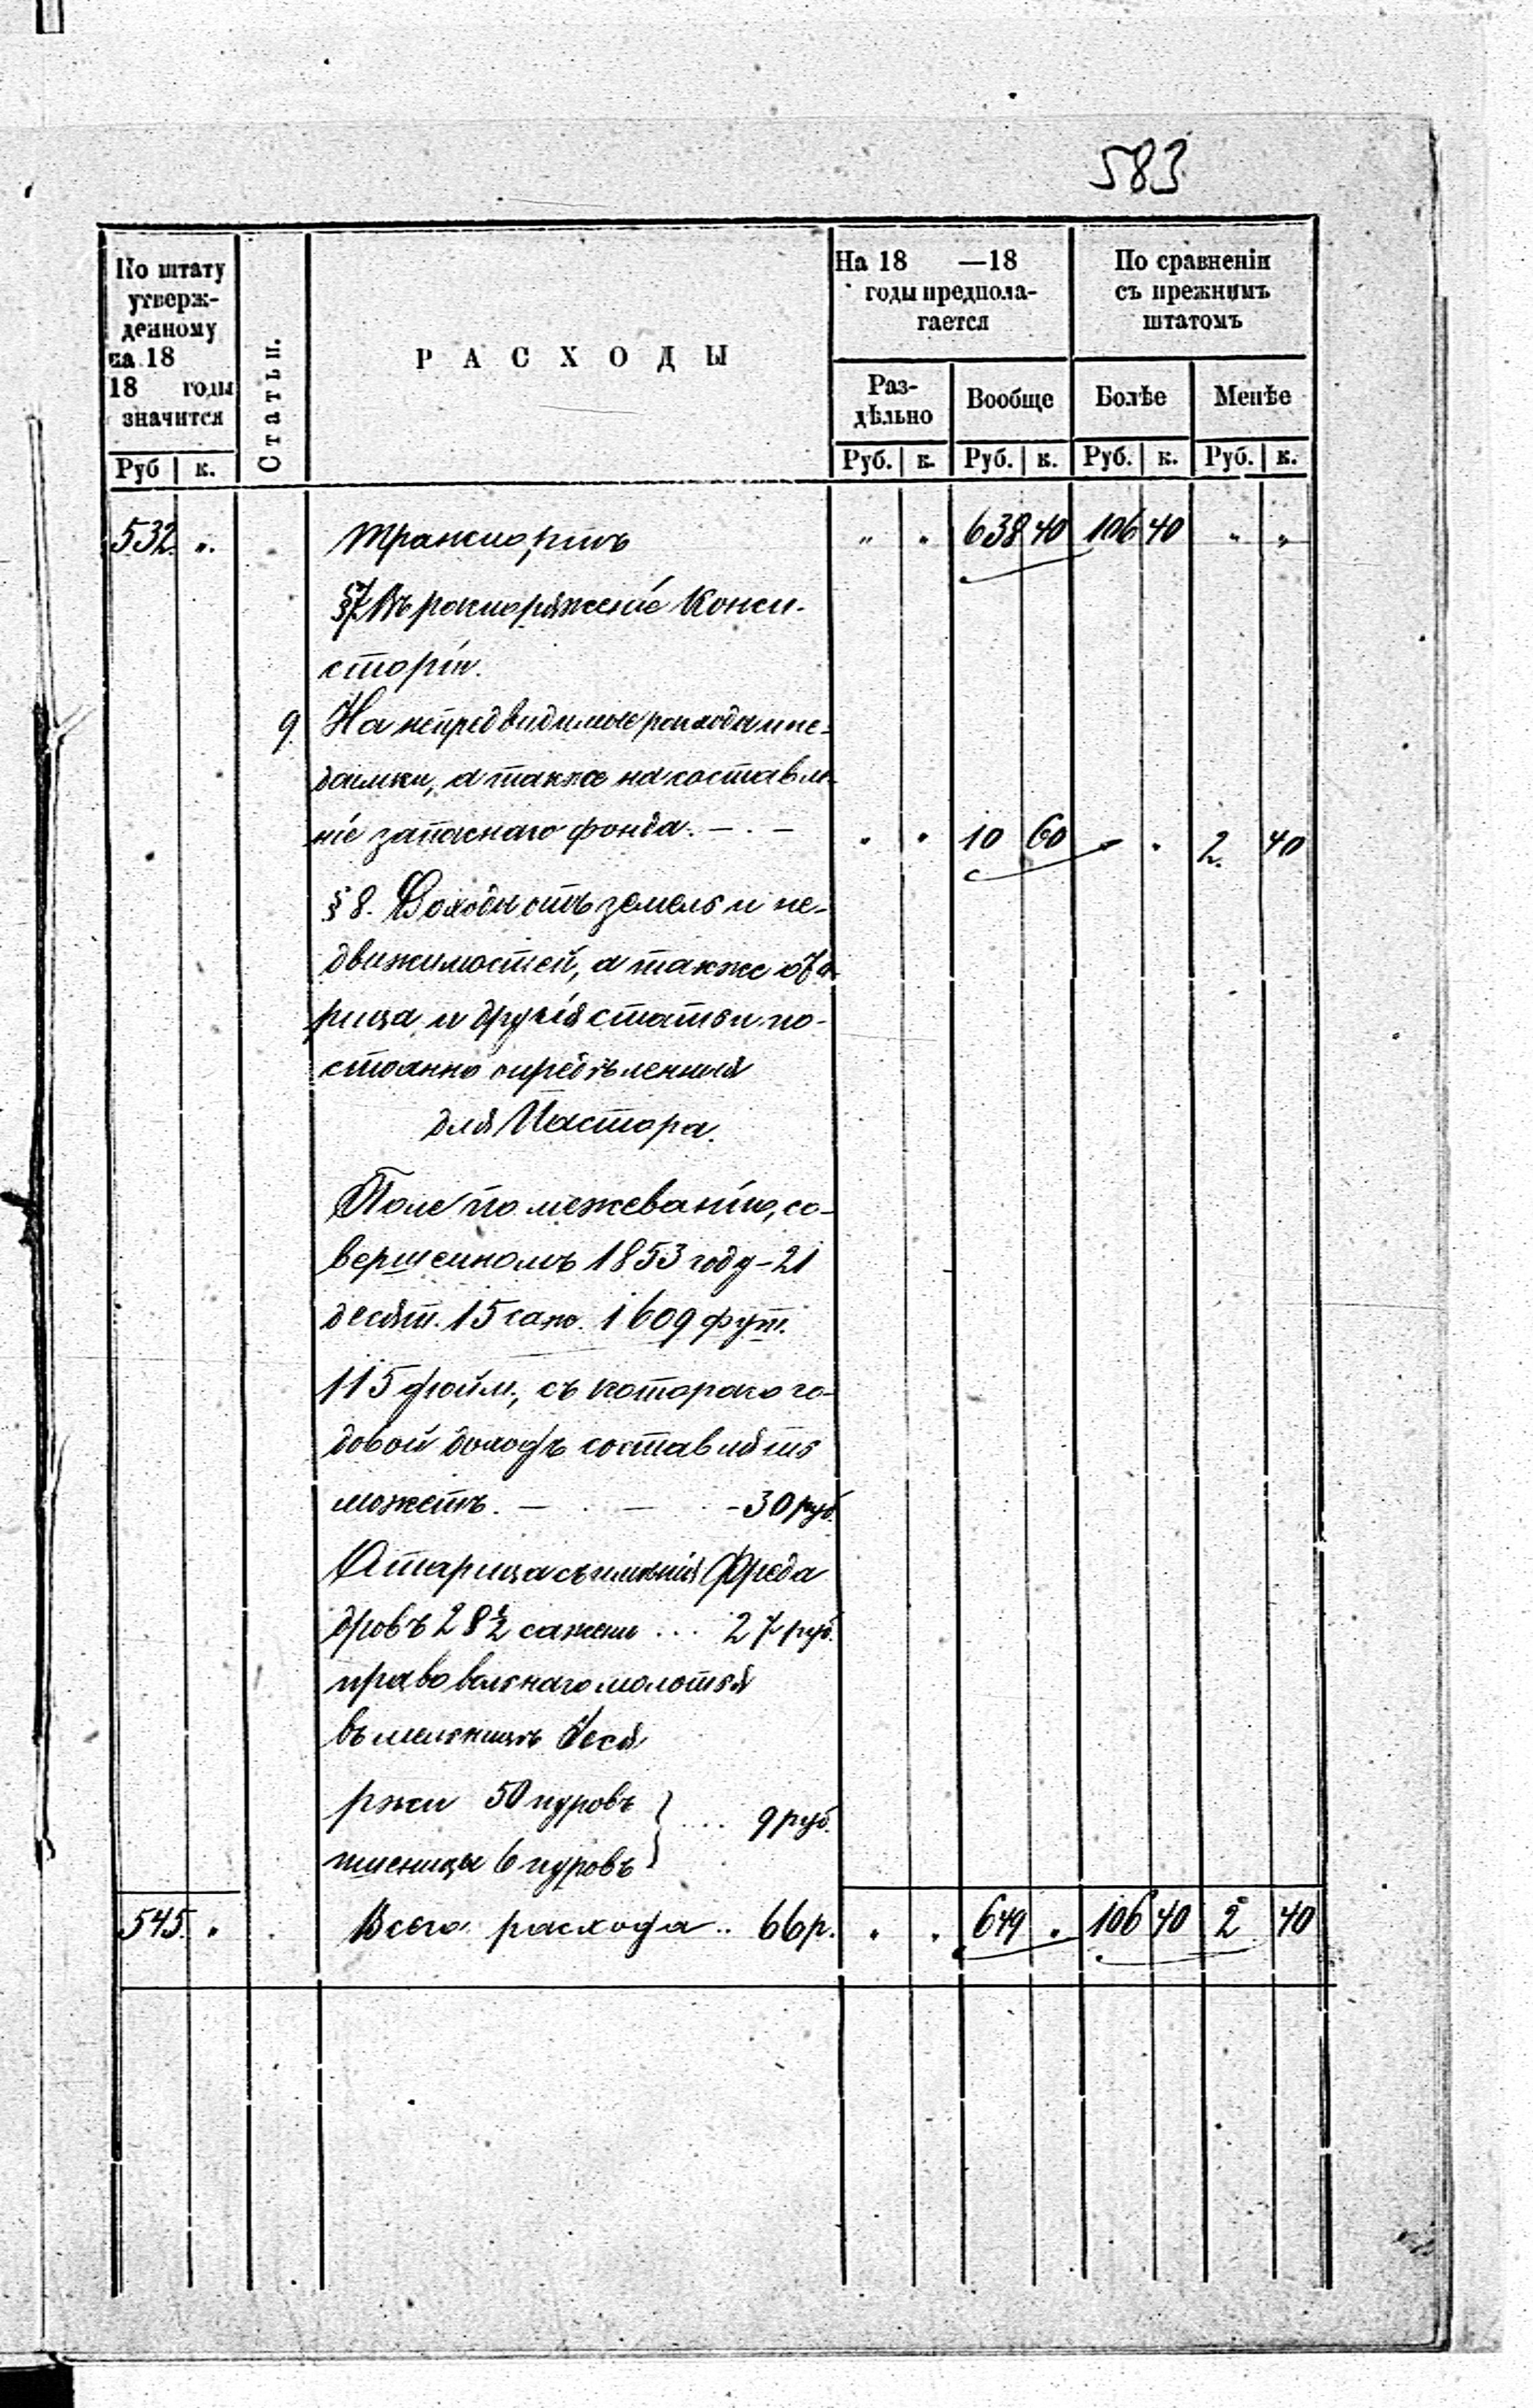 583
По штату утверж-
денному
на 18
18 годы
значится
Статьи.
РАСХОДЫ
На 18 —18
годы предпола-
гается
По сравненія
съ прежнимъ
штатомъ
Раз-
дѣльно
Вообще
Болѣе
Менѣе
Руб к. Руб. к. Руб. к. Руб. к. Руб. к.
532 „ Транспортъ „ „ 638 40 106 40 „ „
§7. Въ распоряженіе Конси-
сторіи.
9. На непредвидимые расходы и не-
доимки, а также на составле-
ніе запаснаго фонда. — . — „ „ 10 60 „ „ 2. 40
§ 8. Доходы отъ земель и не-
движимостей, а также
и другія статьи по-
стоянно опредѣленныя
для Пастора.
Поле по межеванію, со-
вершенномъ 1853 году – 21
десят. 15 саж. 1609 фут.
115 дюйм., съ котораго го-
довой доходъ составлять
можетъ. — . — - 30 руб.
съ имѣнія Фреда
дровъ 28½ сажени ... 27 руб.
право вольнаго молотья
въ мельницѣ
ржи 50 пуровъ
пшеницы 6 пуровъ } .... 9 руб.
545. „ Всего расхода .. 66 р. „ „ 649 „ 106 40 2 40